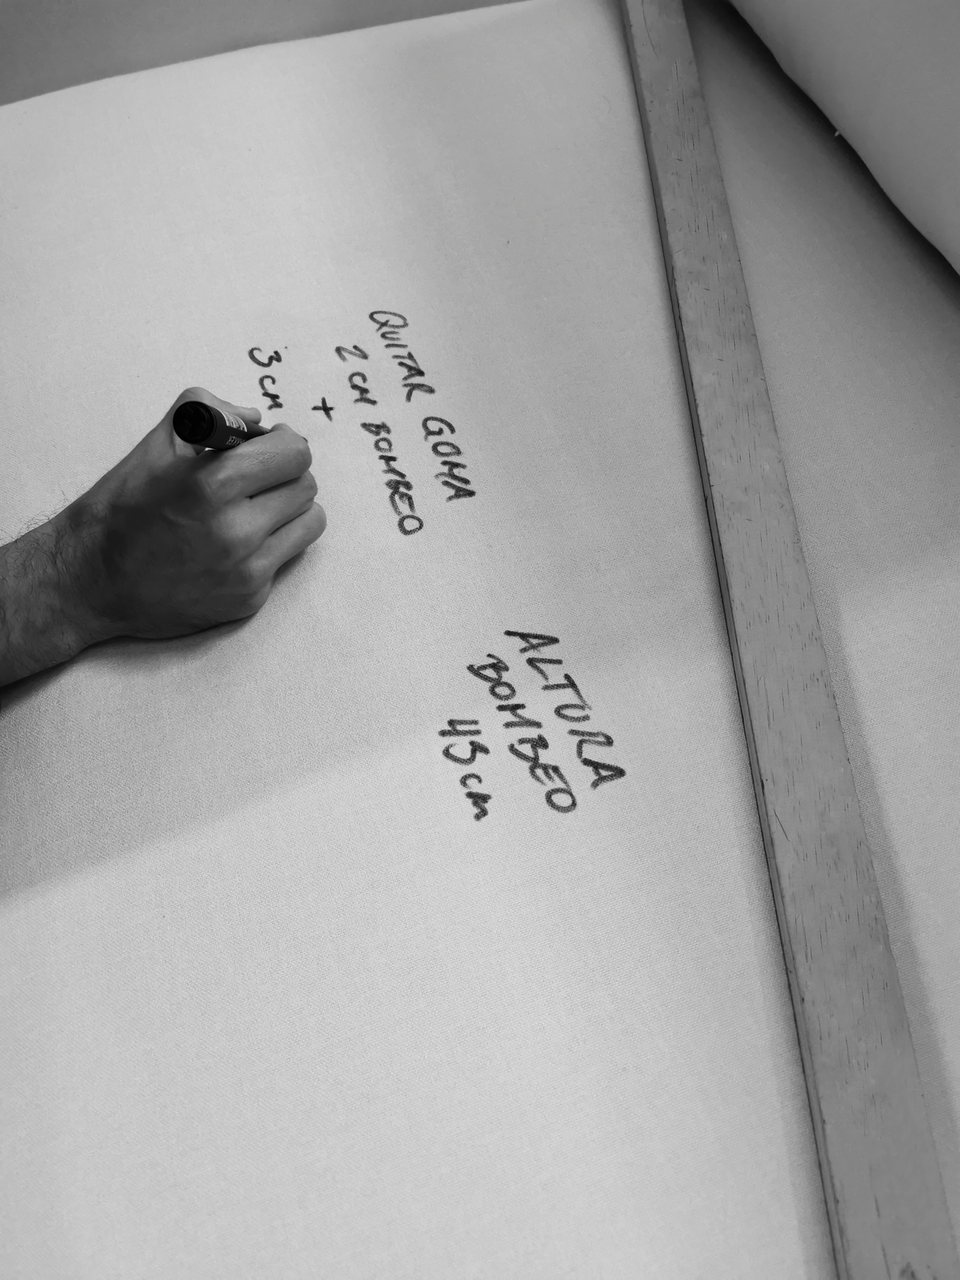 QUITAR GOMA
2 CM BOMBEO
+
3 CM
ALTURA
BOMBEO
43 cm